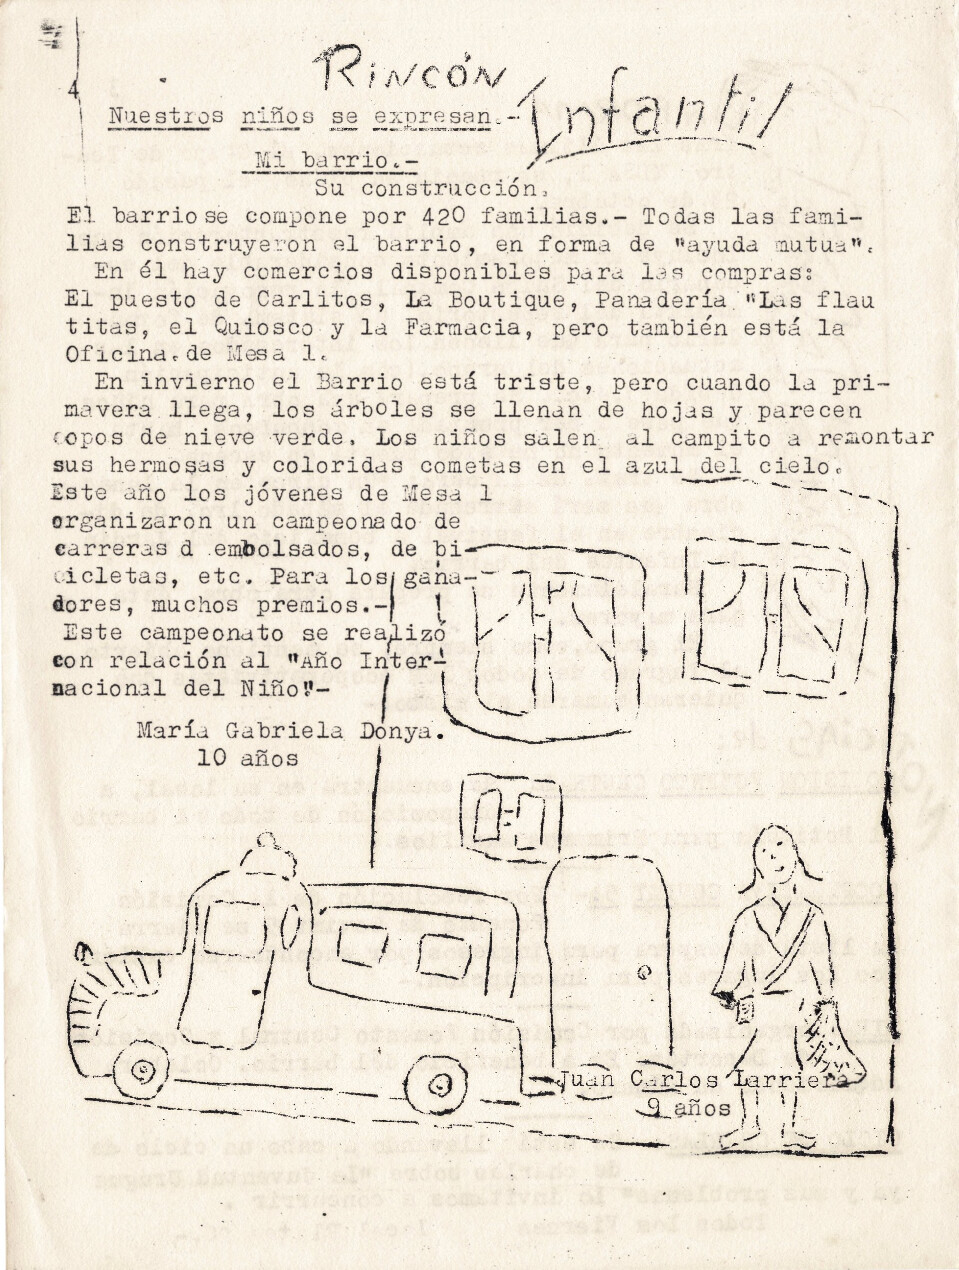 4
RINCÓN
Infantil
Nuestros niños se expresan.-
Mi barrio.-
Su construcción.
El barrio se compone por 420 familias.- Todas las fami-
lias construyeron el barrio, en forma de "ayuda mutua".
En él hay comercios disponibles para las compras:
El puesto de Carlitos, La Boutique, Panadería "Las flau
titas, el Quiosco y la Farmacia, pero también está la
Oficina de Mesa 1.
En invierno el Barrio está triste, pero cuando la pri-
mavera llega, los árboles se llenan de hojas y parecen
copos de nieve verde. Los niños salen al campito a remontar
sus hermosas y coloridas cometas en el azul del cielo.
Este año los jóvenes de Mesa 1
organizaron un campeonado de
carreras d embolsados, de bi-
cicletas, etc. Para los gana-
dores, muchos premios.-
Este campeonato se realizó
con relación al "Año Inter-
nacional del Niño"-
María Gabriela Donya.
10 años
Juan Carlos Larriera
9 años